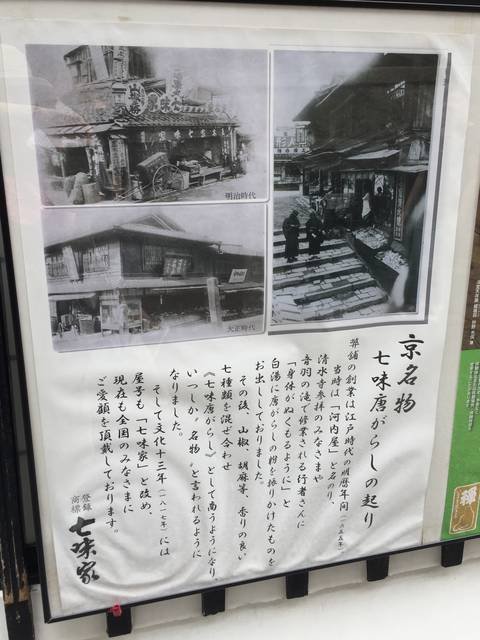 明治時代
大正時代
京名物
七味唐がらしの起り
弊舗の創業は江戸時代の明暦年間(一六五五年)
当時は「河内屋」と名のり、
清水寺参拝のみなさまや
音羽の滝で修業される行者さんに
「身体がぬくもるように」と
白湯に唐がらしの粉を振りかけたものを
お出ししておりました。
その後、山椒、胡麻等、香りの良い
七種類を混ぜ合わせ
《七味唐がらし》として商うようになり、
いつしか〝名物〟と言われるように
なりました。
そして文化十三年(一八一七年)には
屋号も「七味家」と改め、
現在も全国のみなさまに
ご愛顧を頂戴しております。
登録
商標
七味家
禅